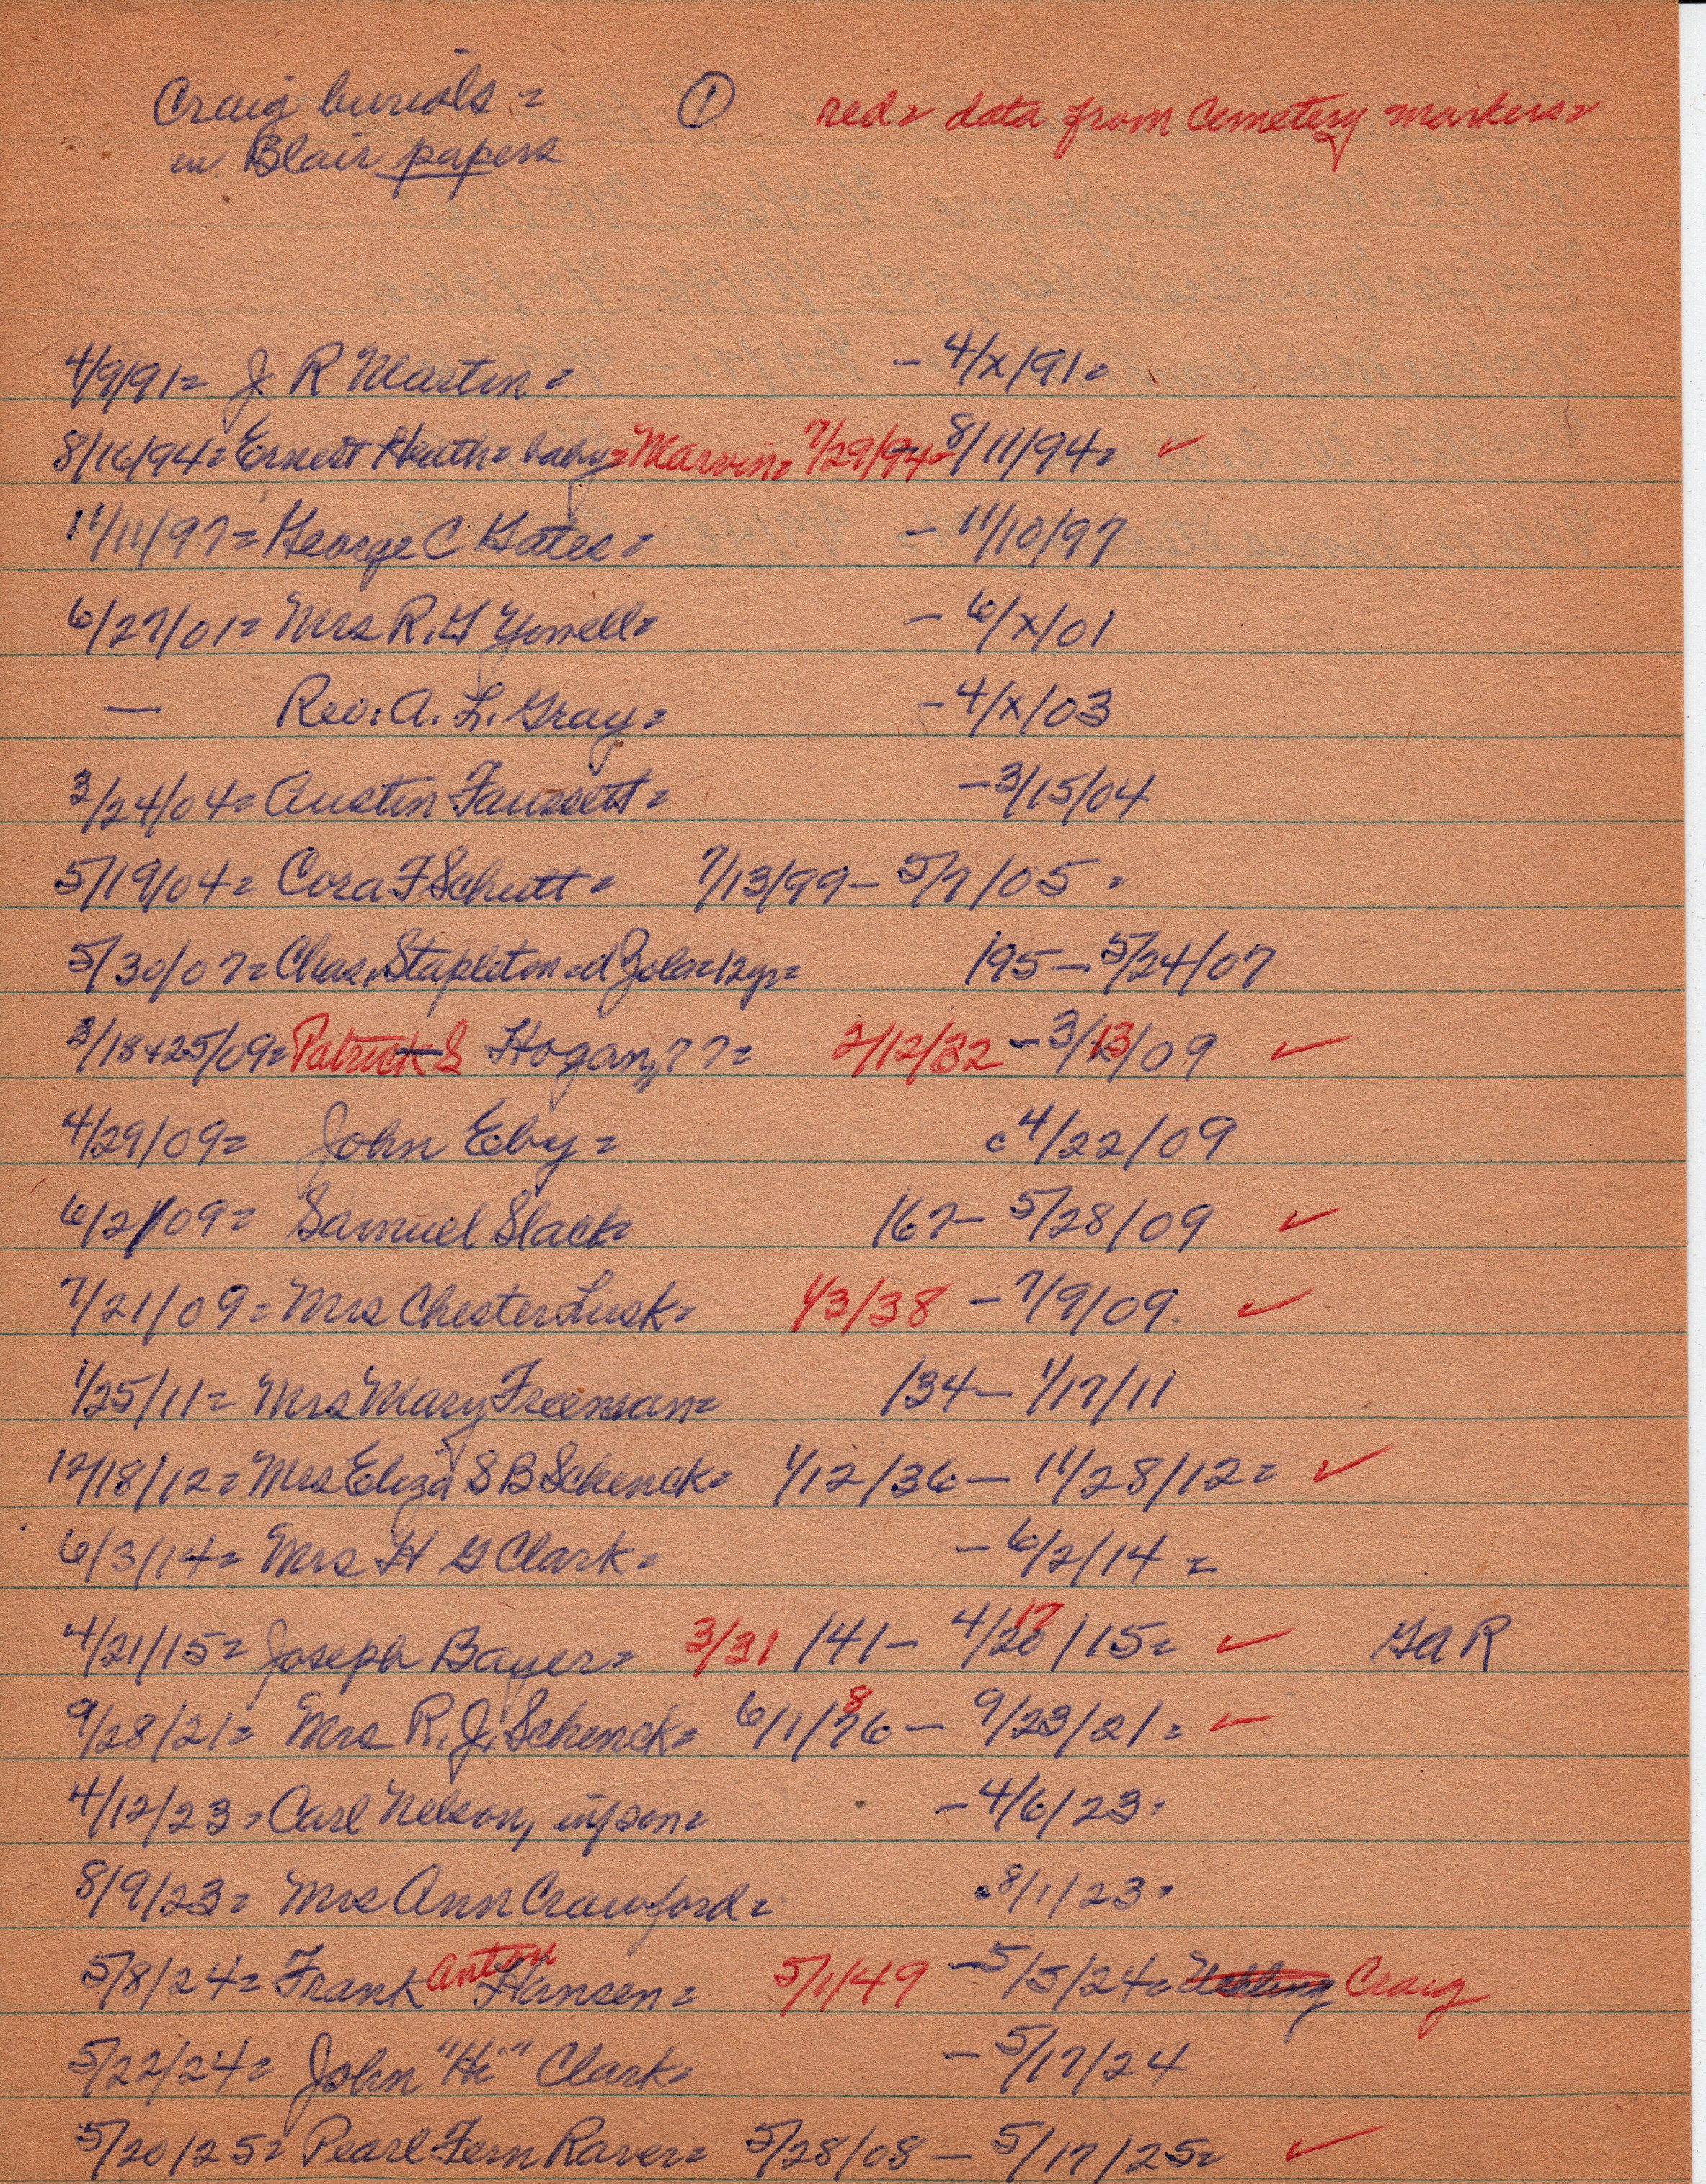 Craig burials =
in Blair papers
①
red = data from Cemetery markers =
4/9/91 = J. R Martin = - 4/x/91 =
8/16/94 = Ernest Heath = baby = Marvin = 7/29/94 = 8/11/94 = ✓
11/11/97 = George C Gates = - 11/10/97
6/27/01 = Mrs R. G Yowell = - 6/x/01
— Rev. A. L. Gray = - 4/x/03
3/24/04 = Austin Faussett = - 3/15/04
5/19/04 = Cora F Schutt = 7/13/99 - 5/7/05 =
5/30/07 = Chas. Stapleton = d Zola = 12 yr = 195 - 5/24/07
3/18+25/09 = Patrick S Hogan, ?? = 2/12/32 - 3/13/09 ✓
4/29/09 = John Eby = c 4/22/09
6/2/09 = Samuel Slack = 167 - 5/28/09 ✓
7/21/09 = Mrs Chester Lusk = 1/3/38 - 7/9/09 ✓
1/25/11 = Mrs Mary Freeman = 134 - 1/17/11
12/18/12 = Mrs Eliza S B Schenck = 1/12/36 - 11/28/12 = ✓
6/3/14 = Mrs H G Clark = - 6/2/14 =
4/21/15 = Joseph Bayer = 3/31/41 - 4/20 17/15 = ✓ GAR
9/28/21 = Mrs R. J. Schenck = 6/1/76 8 - 9/23/21 = ✓
4/12/23 = Carl Nelson, inf son = - 4/6/23 =
8/9/23 = Mrs Ann Crawford = - 8/1/23 =
5/8/24 = Frank Anton Hansen = 5/1/49 - 5/5/24 = Craig
5/22/24 = John "Hi" Clark = - 5/17/24
5/20/25 = Pearl Fern Raver = 5/28/08 - 5/17/25 = ✓